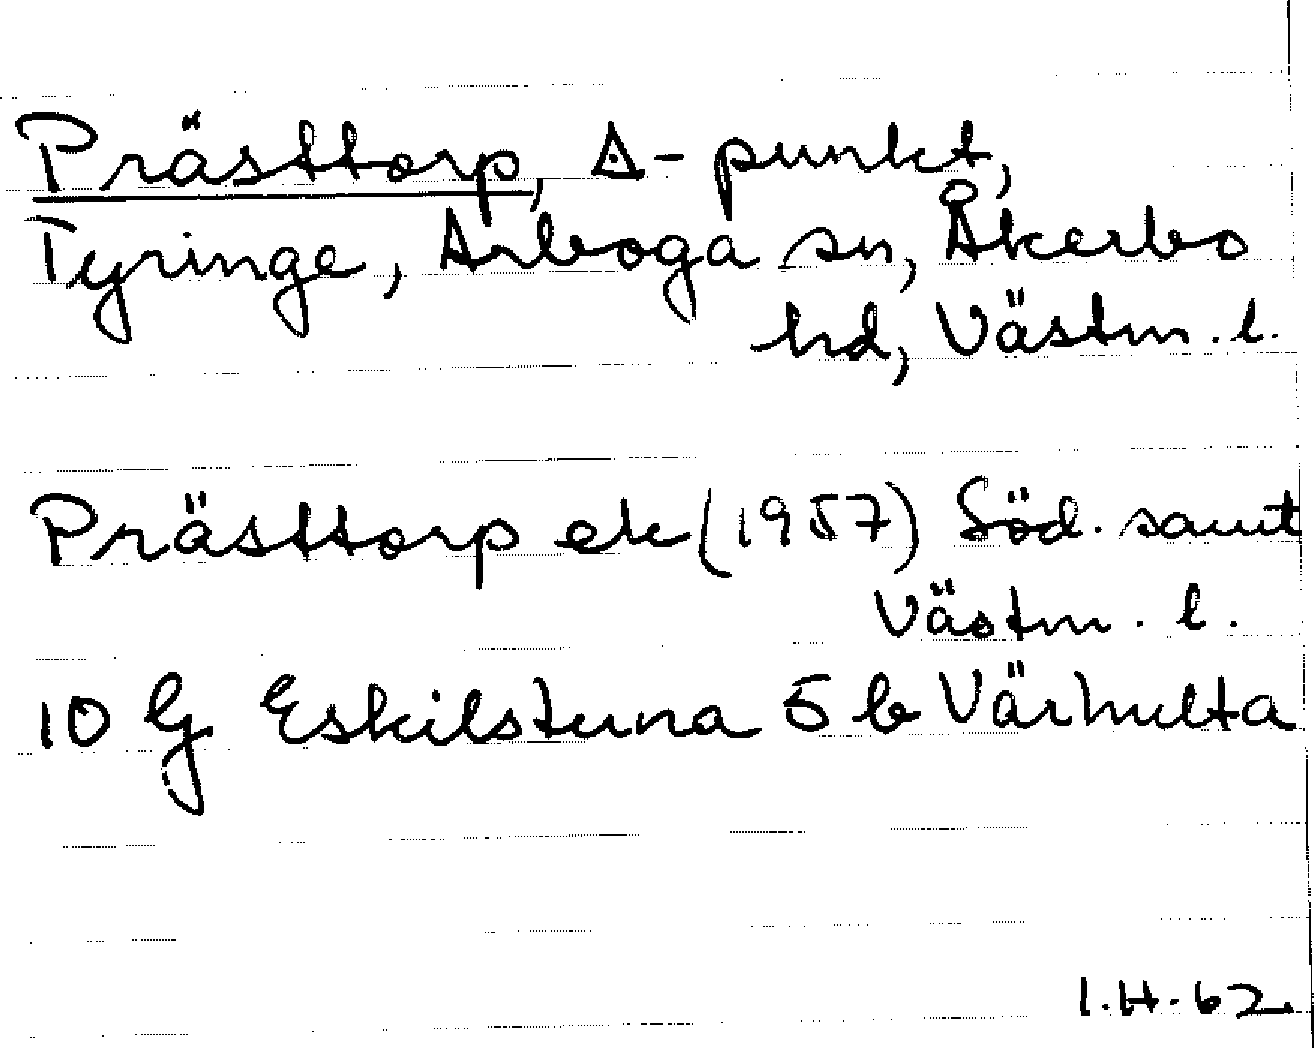 Prästtorp, ∆-punkt,
Tyringe, Arboga sn, Åkerbo
hd, Västm. l.
Prästtorp ek (1957) Söd. samt
Västm. l.
10 G Eskilstuna 5 b Värhulta
I.H.62.